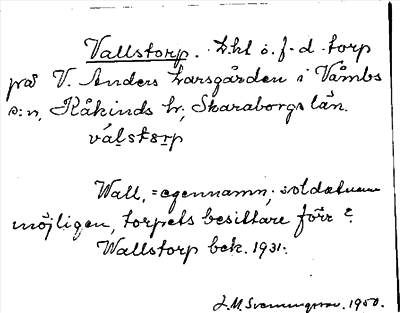 Vallstorp. Lht o. f. d. torp
på V. Anders Larsgården i Våmbs
s:n, Kåkinds hr, Skaraborgs län.
válstɔrp
Wall, = egennamn, soldatnamn
möjligen, torpets besittare förr?
Wallstorp bek. 1931.
J. M. Svenningsson. 1950.